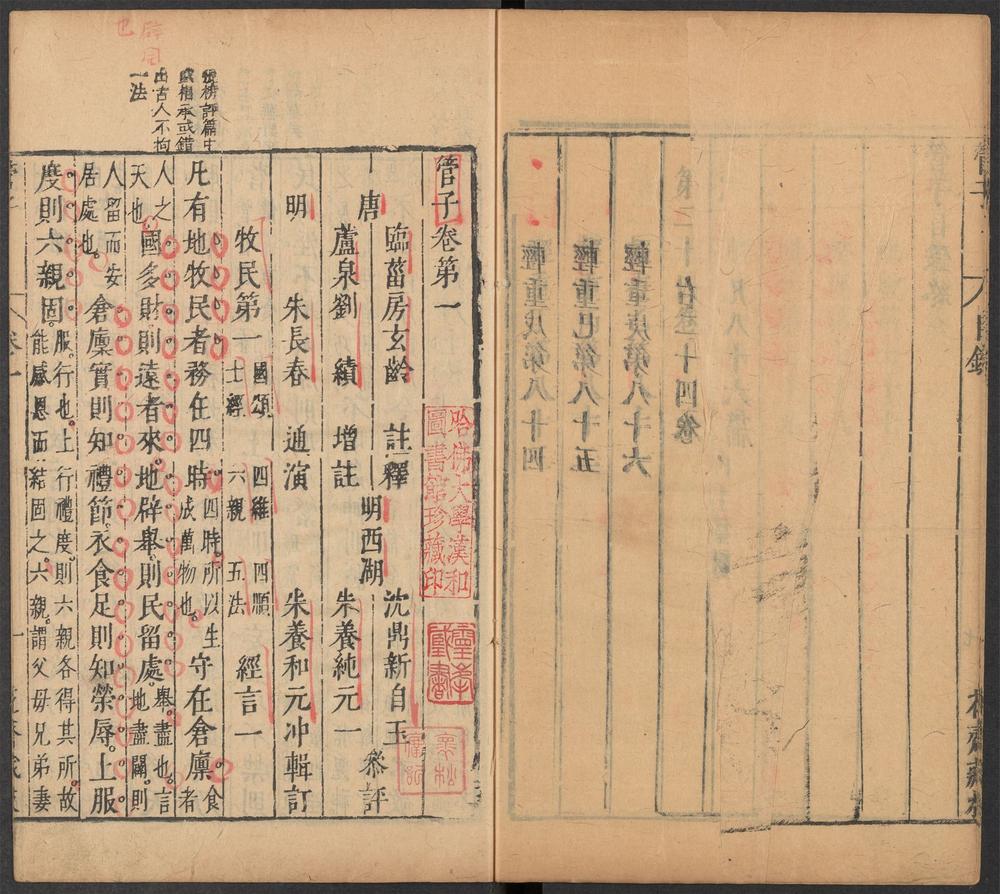 輕重庚第八十六
輕重己第八十五
輕重戊第八十四
張榜評篇中
相承或錯
出古人不拘
一法
管子卷第一
唐 臨菑房玄齡 註釋
蘆泉劉 績 增註
明 朱長春 通演
明西湖 沈鼎新自玉
朱養純元一 叅評
朱養和元冲輯訂
牧民第一 國頌 四維 四順
士經 六親 五法 經言一
凡有地牧民者務在四時四時所以生
成萬物也守在倉廩食者
人之
天也國多財則遠者來地辟舉則民留處舉盡也言
地盡闢則
人留而安
居處也倉廩實則知禮節衣食足則知榮辱上服
度則六親固服行也上行禮度則六親各得其所故
能感恩而結固之六親謂父母兄弟妻
哈佛大學漢和
圖書館珍藏印